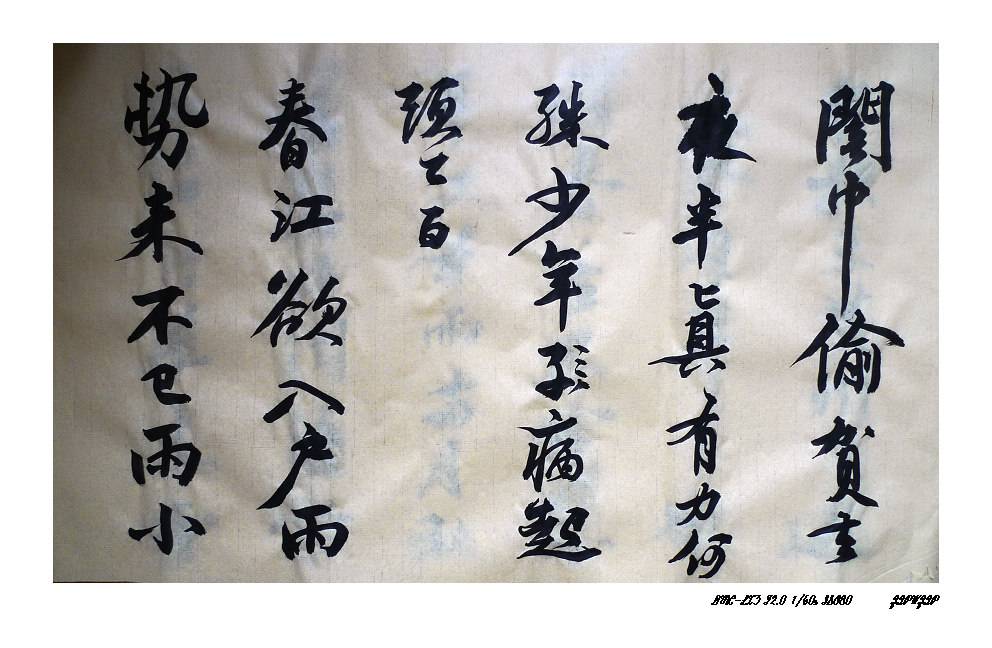 闇中偷負去
夜半真有力何
殊少年子病起
頭已白
春江欲入戶雨
勢来不已雨小
DMC-LX3 F2.0 1/60s ISO800